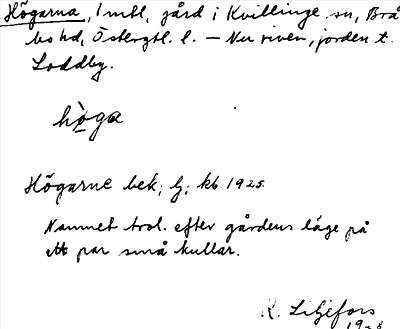 Högarna, 1 mtl, gård i Kvillinge sn, Brå
bo hd, Östergtl. l. — Nu riven, jorden t.
Loddby.
hòga
Högarne bek; lj; kb. 1925.
Namnet trol. efter gårdens läge på
ett par små kullar.
R. Liljefors